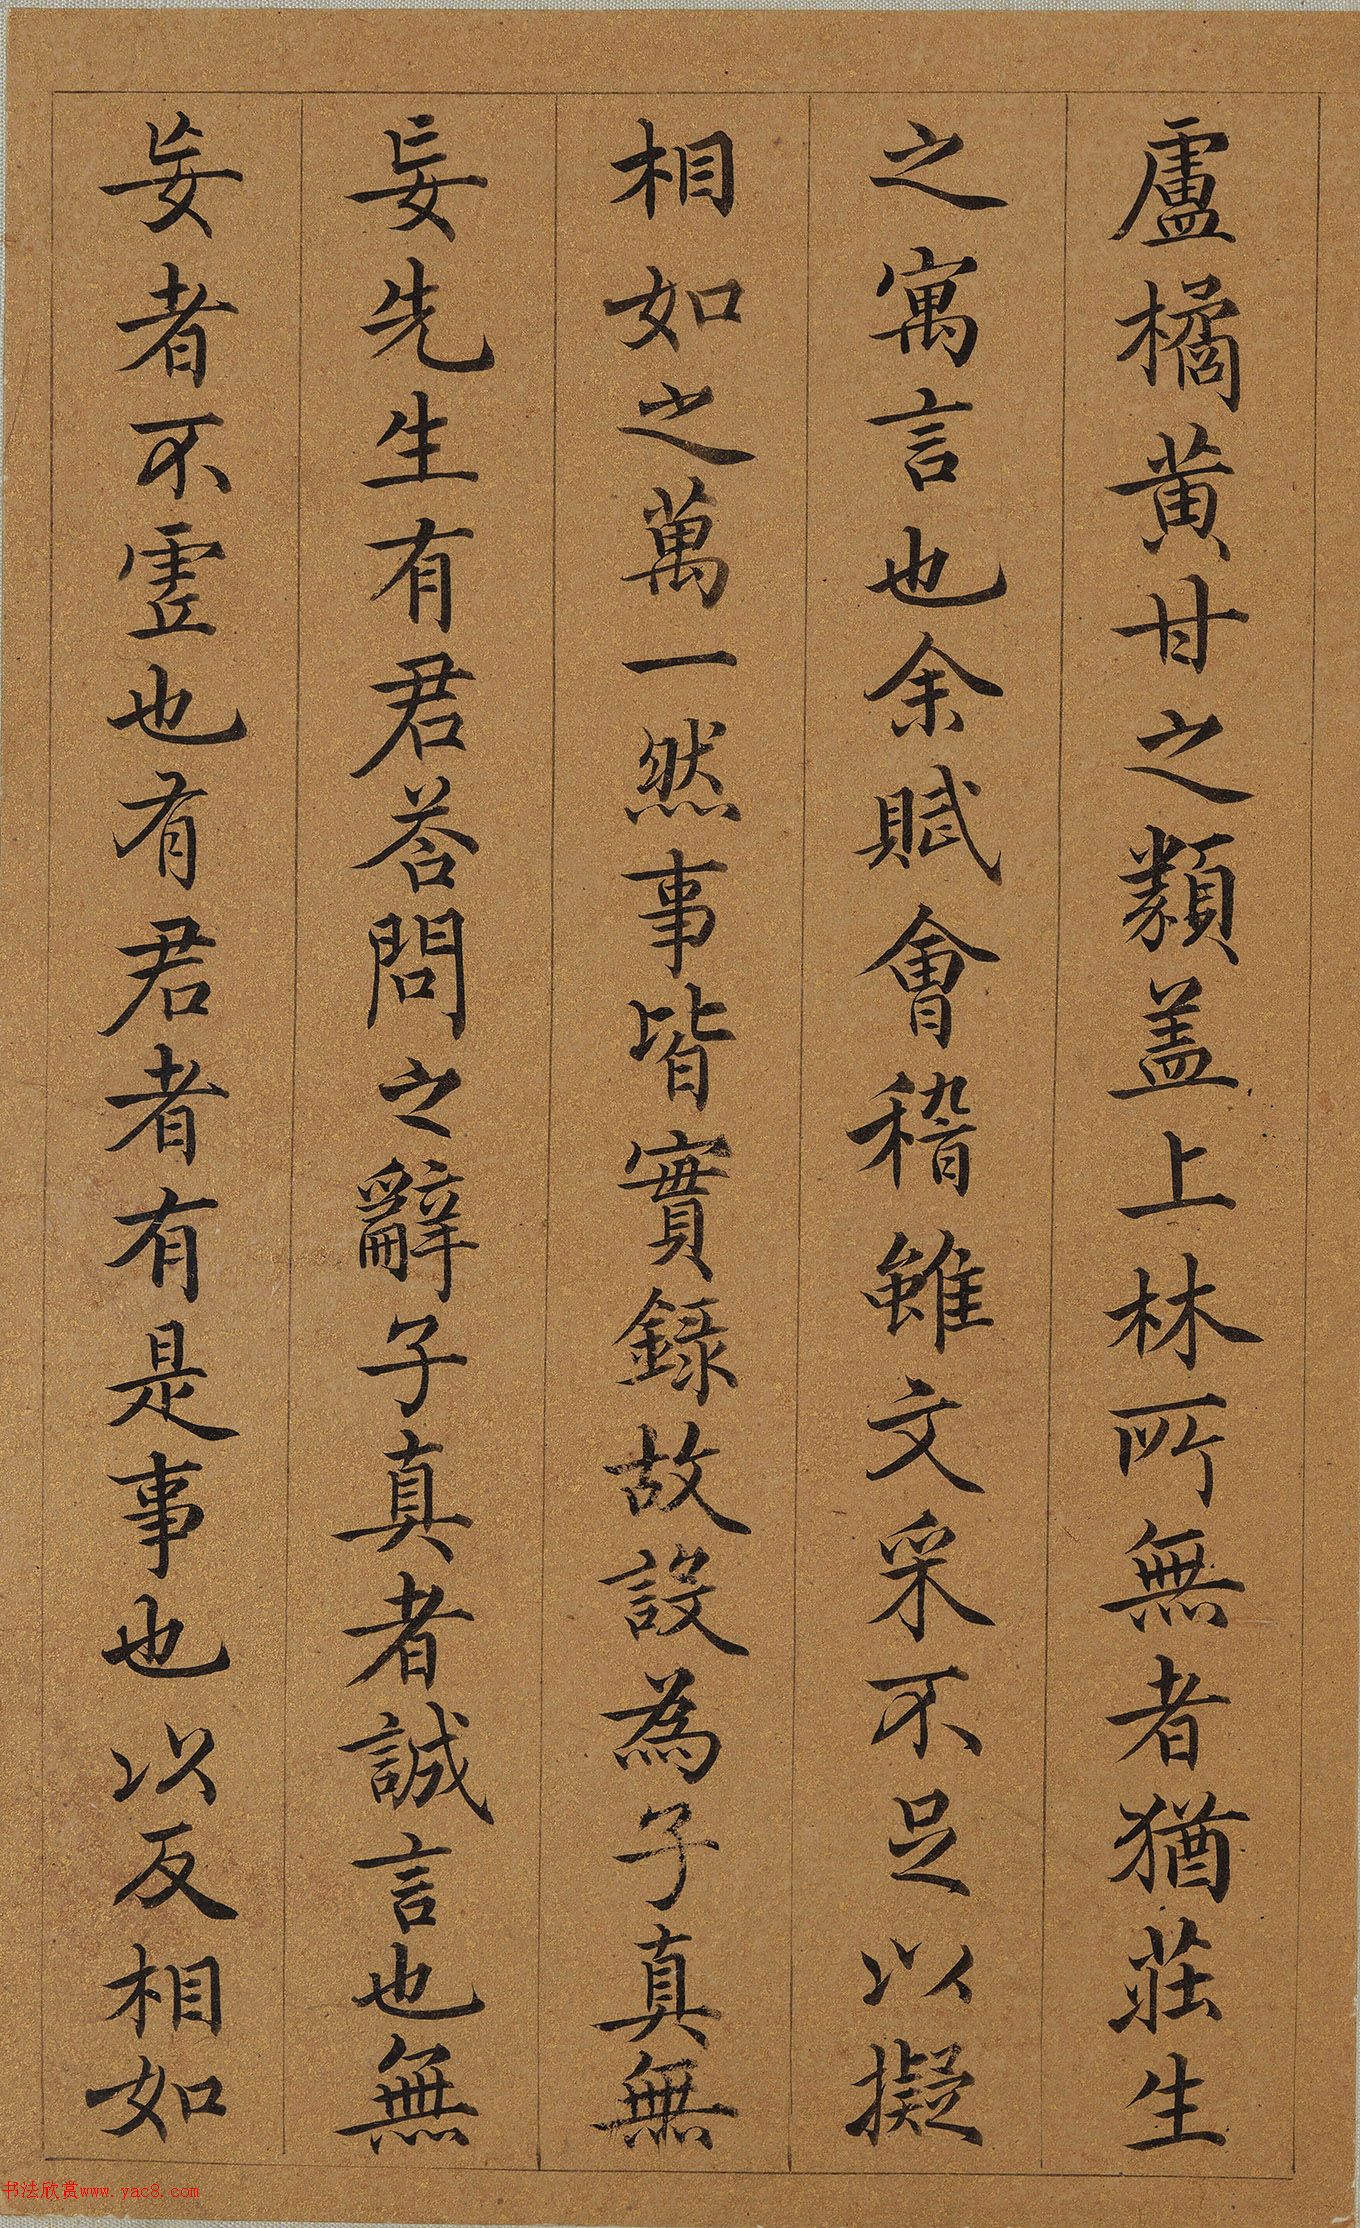 盧橘黃甘之類蓋上林所無者猶莊生
之寓言也余賦會稽雖文采不足以擬
相如之萬一然事皆實録故設為子真無
妄先生有君荅問之辭子真者誠言也無
妄者不虛也有君者有是事也以反相如
书法欣赏www.yac8.com